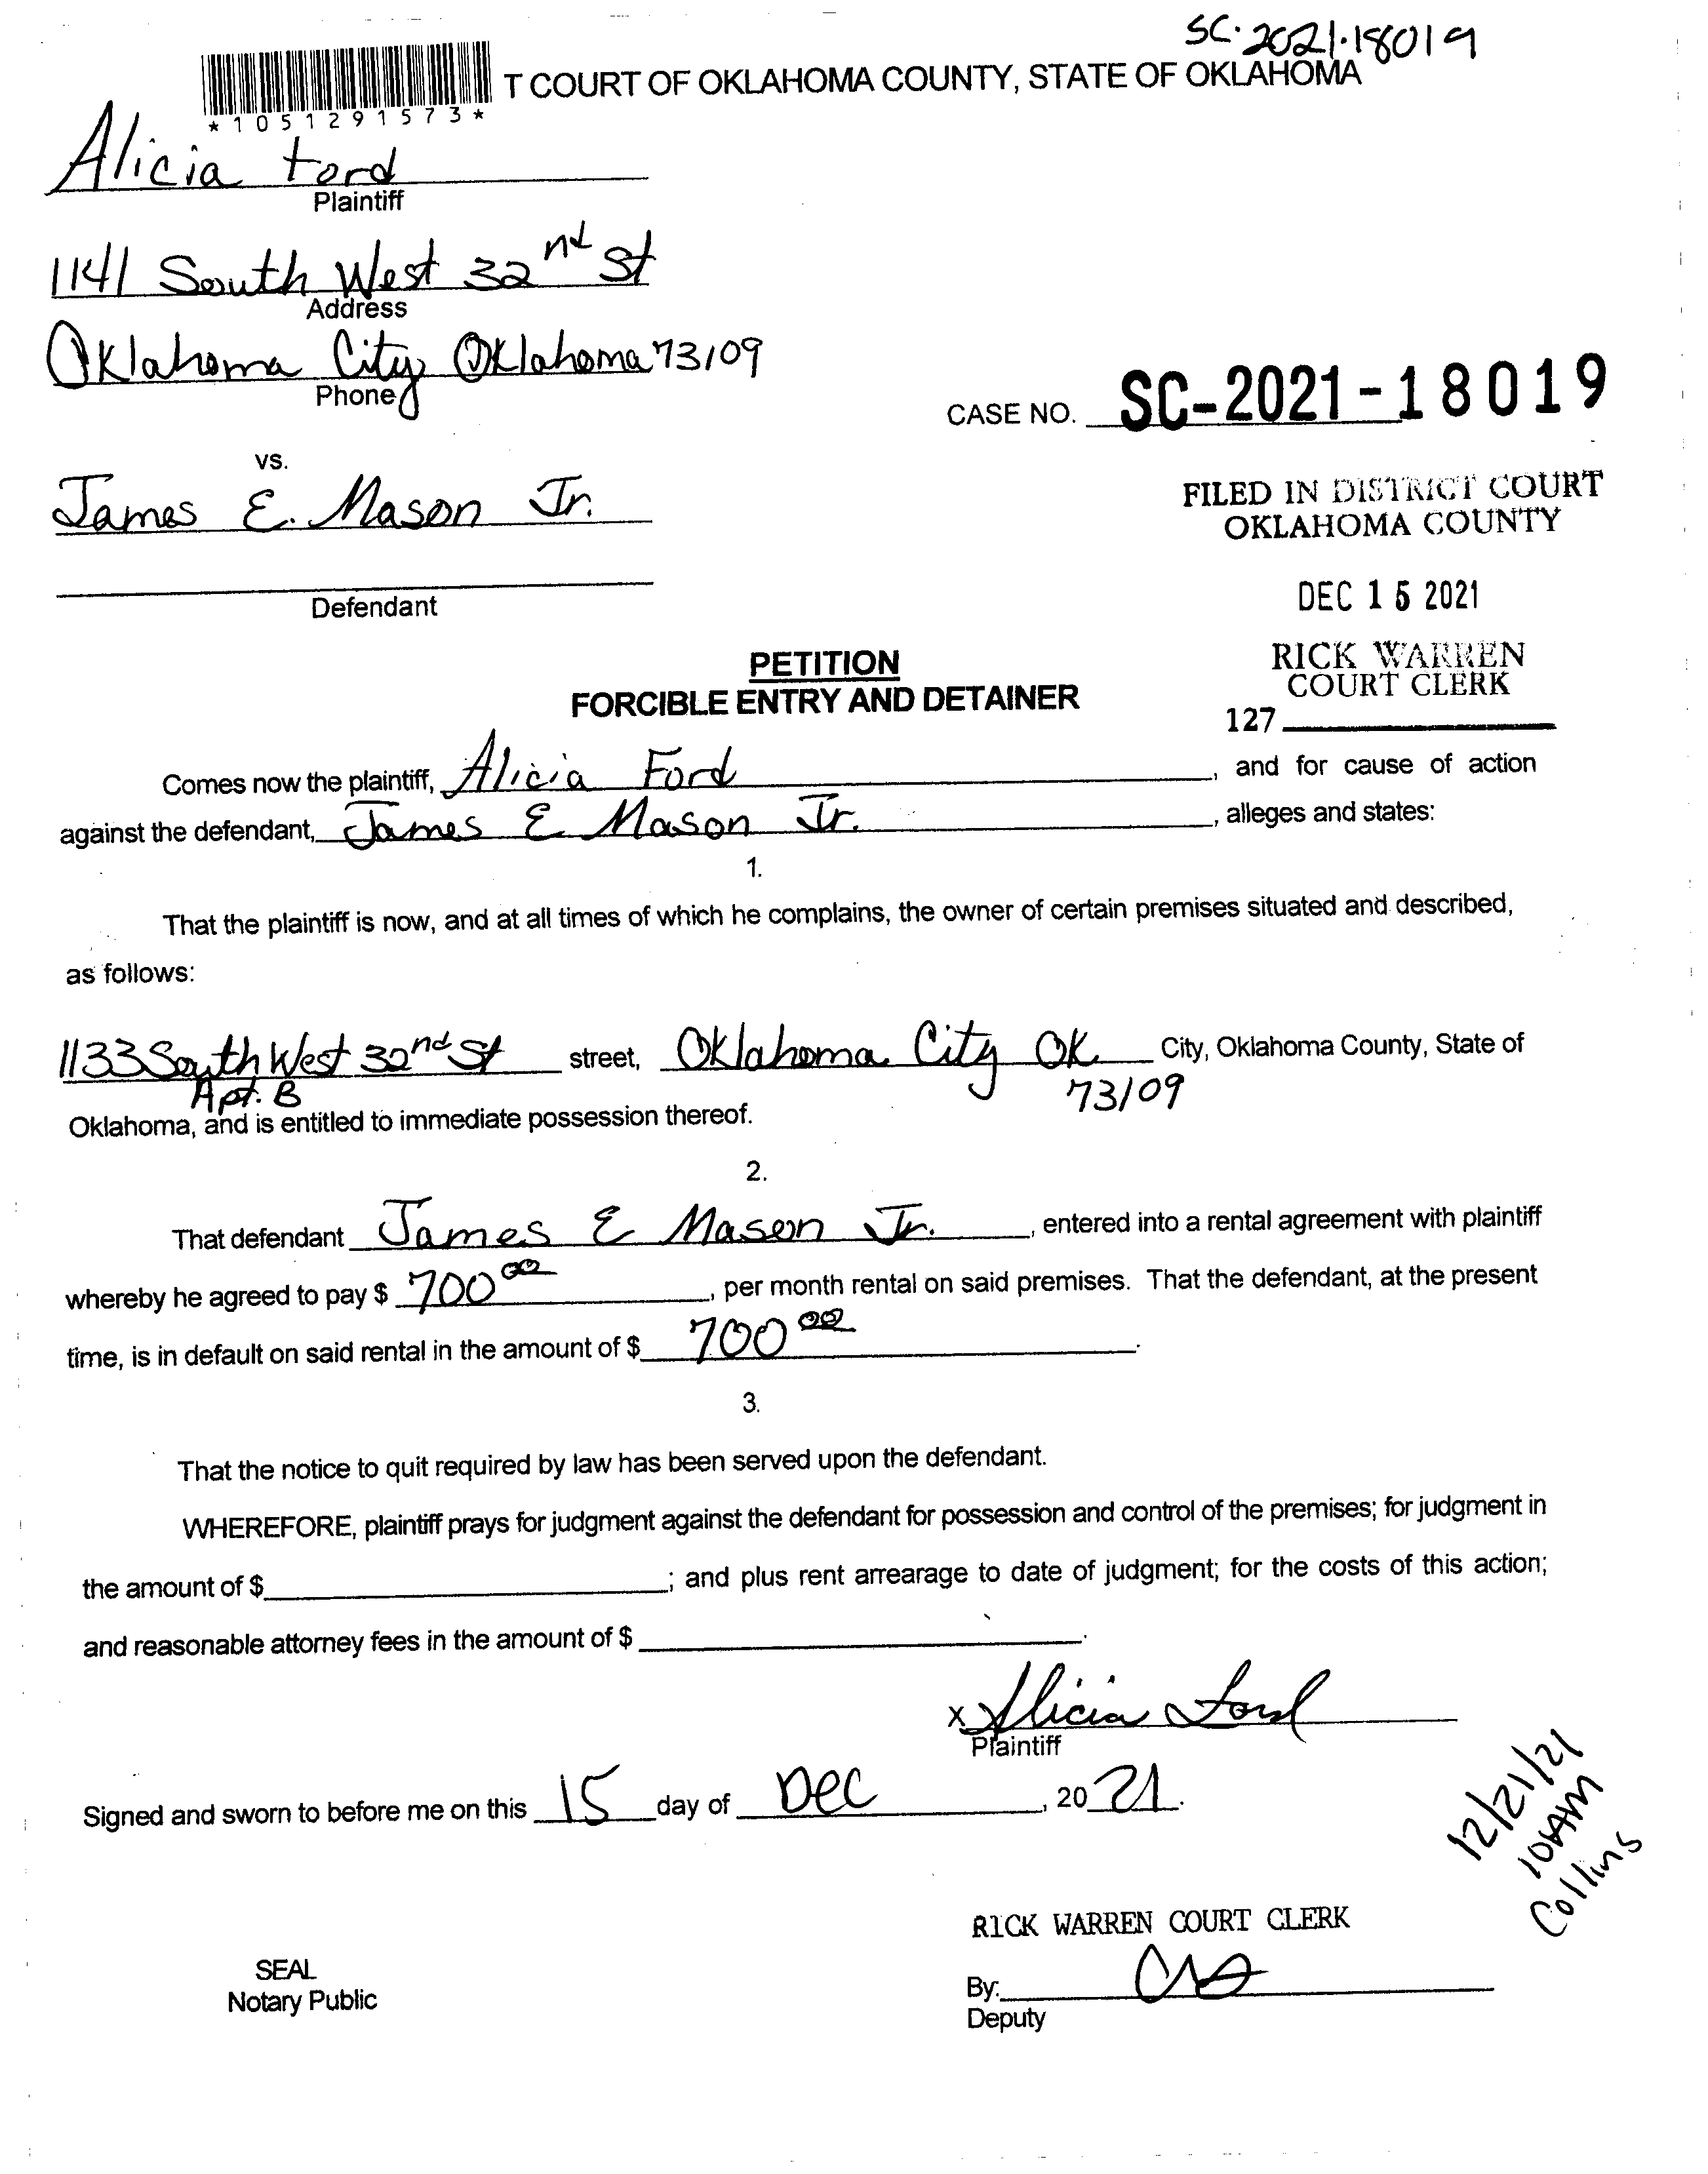 SC-2021-18019
T COURT OF OKLAHOMA COUNTY, STATE OF OKLAHOMA
*1051291573*
Alicia Ford
Plaintiff
1141 South West 32nd St
Address
Oklahoma City Oklahoma 73109
Phone
CASE NO. SC-2021-18019
vs.
James E. Mason Jr.
FILED IN DISTRICT COURT
OKLAHOMA COUNTY
Defendant
DEC 15 2021
PETITION
FORCIBLE ENTRY AND DETAINER
RICK WARREN
COURT CLERK
127
Comes now the plaintiff, Alicia Ford, and for cause of action
against the defendant, James E Mason Jr., alleges and states:
1.
That the plaintiff is now, and at all times of which he complains, the owner of certain premises situated and described,
as follows:
1133 South West 32nd St street, Oklahoma City OK City, Oklahoma County, State of
Apt. B 73109
Oklahoma, and is entitled to immediate possession thereof.
2.
That defendant James E Mason Jr., entered into a rental agreement with plaintiff
whereby he agreed to pay $ 700 00, per month rental on said premises. That the defendant, at the present
time, is in default on said rental in the amount of $ 700 00.
3.
That the notice to quit required by law has been served upon the defendant.
WHEREFORE, plaintiff prays for judgment against the defendant for possession and control of the premises; for judgment in
the amount of $ ; and plus rent arrearage to date of judgment; for the costs of this action;
and reasonable attorney fees in the amount of $ .
x Alicia Ford
Plaintiff
Signed and sworn to before me on this 15 day of Dec, 20 21.
12/21/21
10AM
Collins
RICK WARREN COURT CLERK
SEAL
Notary Public
By:
Deputy